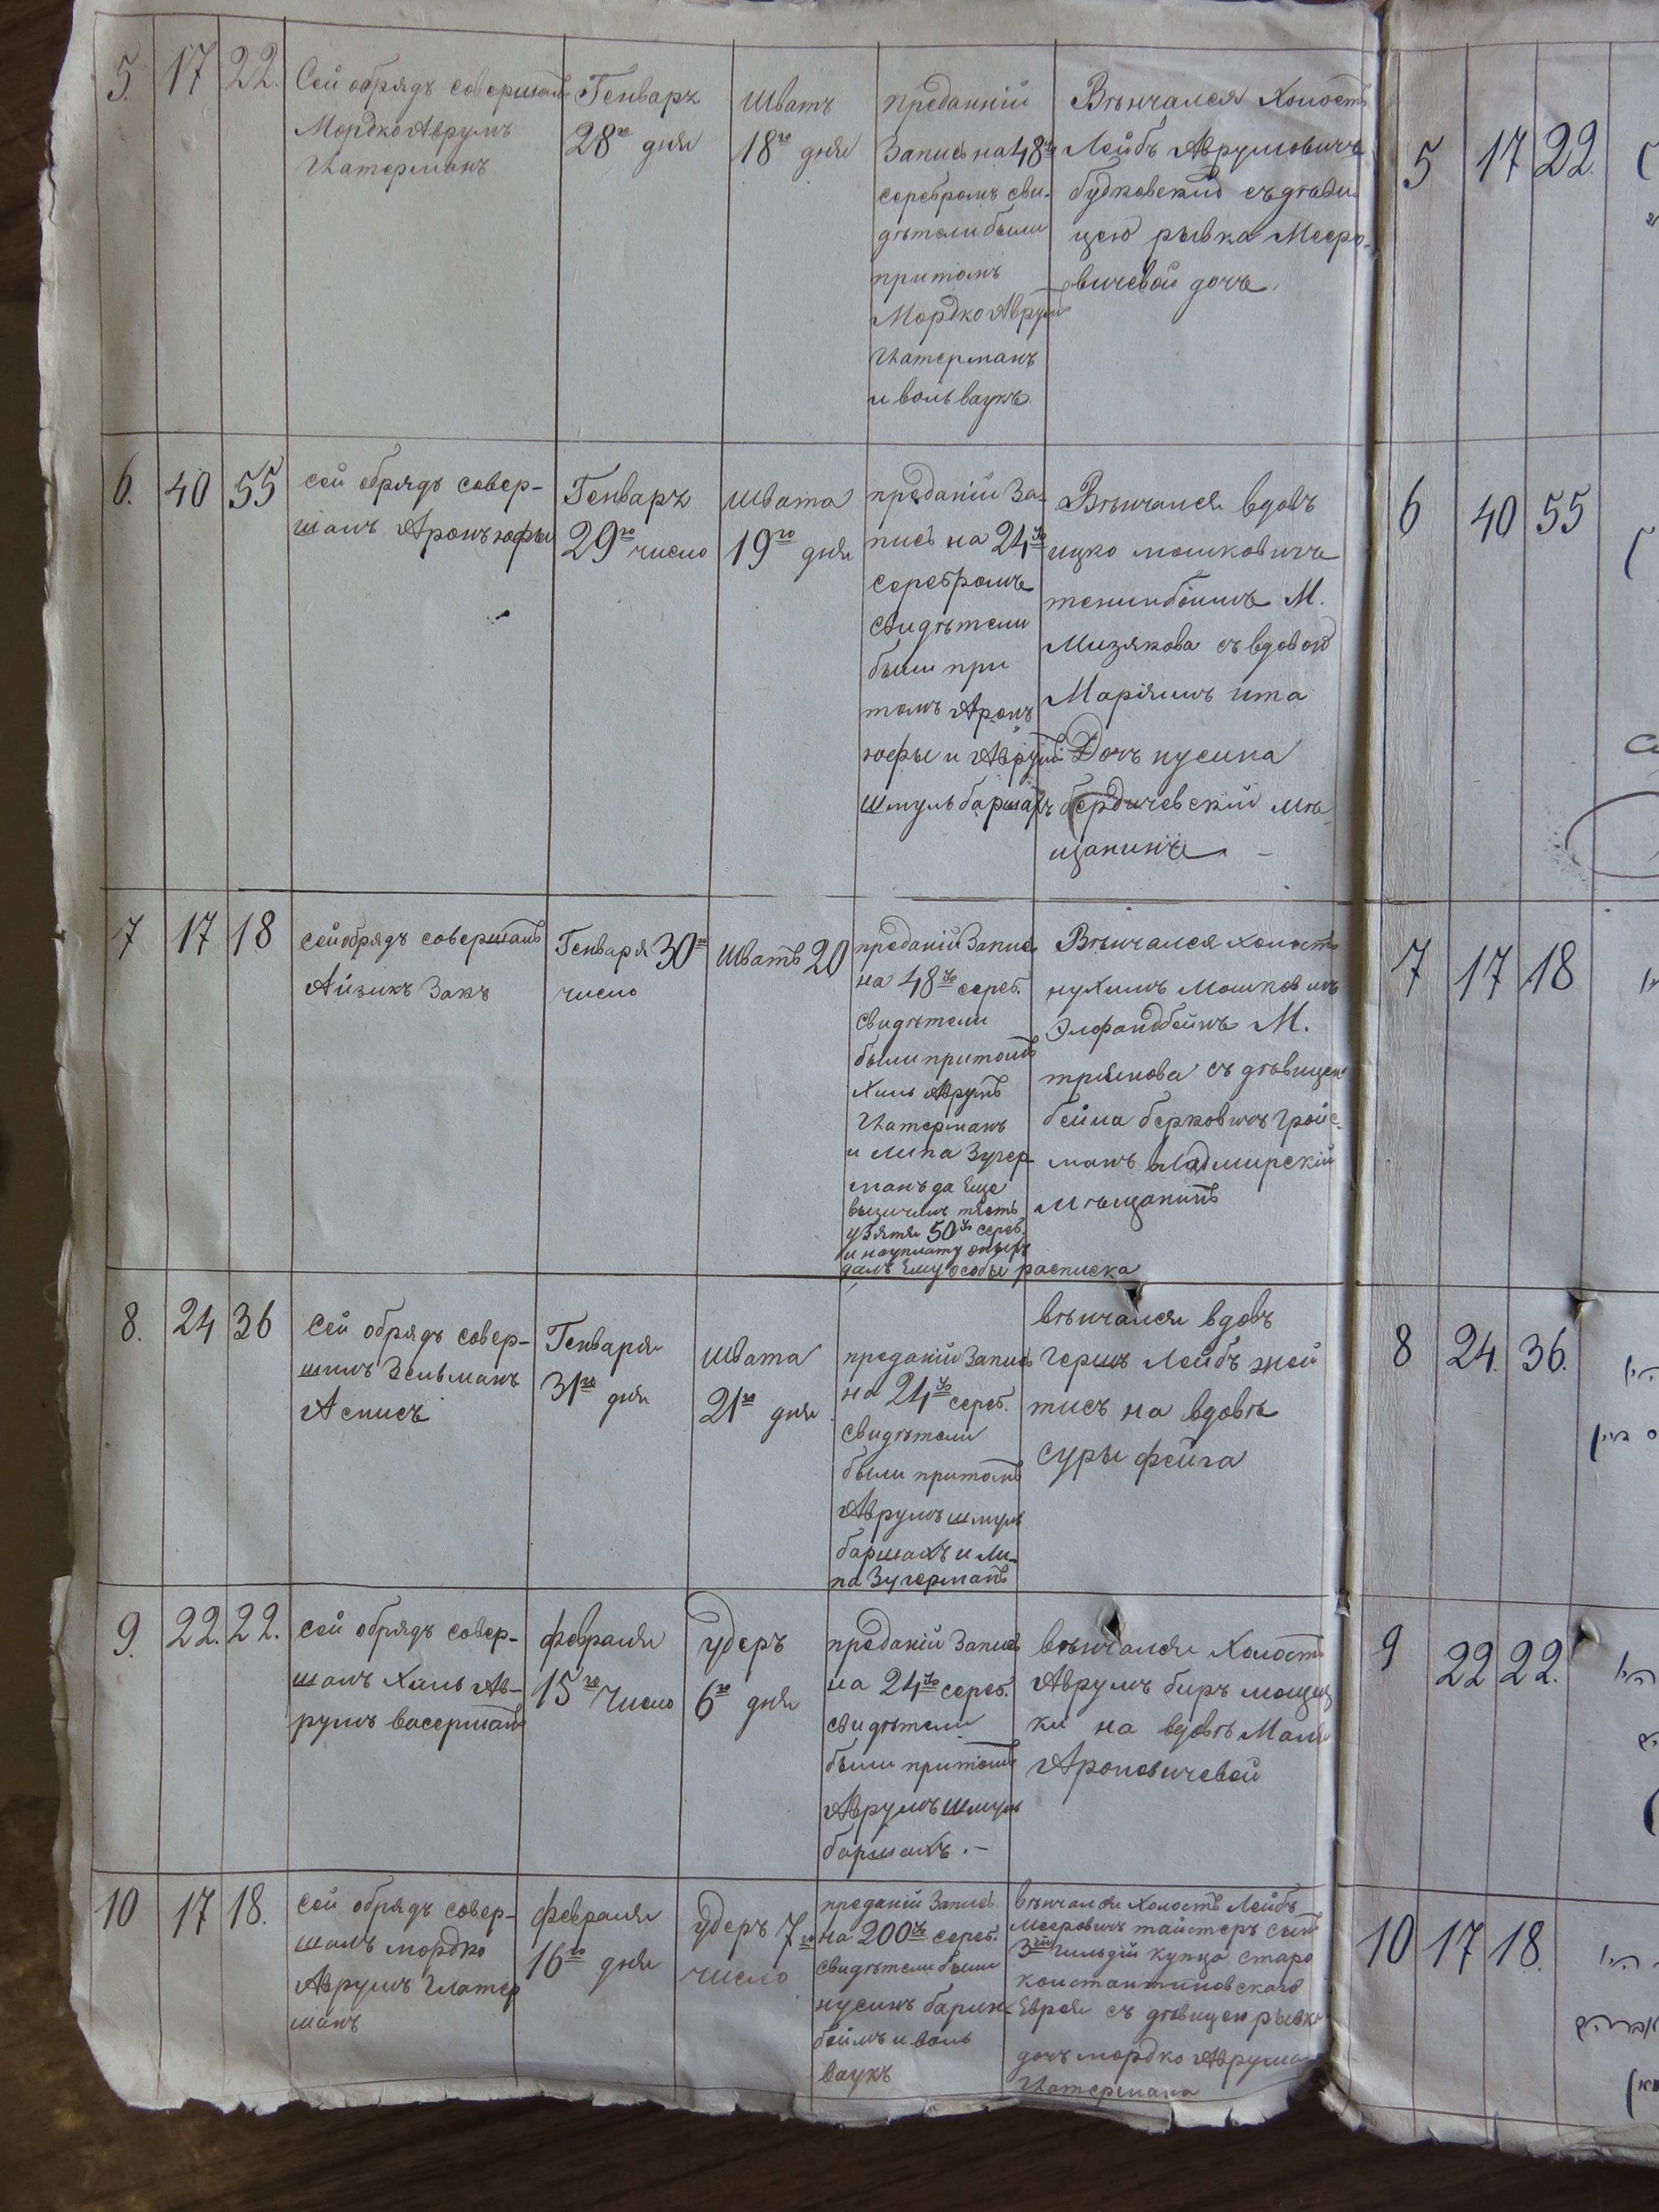 5. 17 22.
Сей обрядъ совершалъ
Мордко Аврумъ
Глатерманъ
Генваръ
28го дня
Шватъ
18го дня
преданній
Запись на 48
серебромъ сви-
дѣтели были
притомъ
Мордко Аврумъ
Глатерманъ
и воль ваукъ
Вѣнчался Холостъ
Лейбъ Аврумовичъ
будковскій съ дѣви-
цею рывка Мееро-
вичевой дочъ.
5 17 22.
6. 40 55
сей обрядъ совер-
шалъ Аронъ юфы
Генваръ
29го число
Швата
19го дня
преданій За-
пись на 24
серебромъ
Свидѣтели
были при
томъ Аронъ
юфы и Аврумъ
Шмуль баршахъ
Вѣнчался вдовъ
ицко мошковичъ
М.
Мизякова съ вдовой
Маріямъ ита
Дочъ нусина
бердичевскій мѣ-
щанинъ –
6 40 55
7 17 18
сей обрядъ совершалъ
Айзикъ Закъ
Генваря 30го
число
Шватъ 20
преданій Запись
на 48 сереб.
Свидѣтели
были притомъ
Хиль Аврумъ
Глатерманъ
и Липа Зугер-
манъ да Еще
тесть
у зятя 50 сереб.
и на уплату
далъ Ему особы росписка
Вѣнчался холостъ
нухимъ Мошковичъ
М.
съ дѣвицею
бейла берковичъ Гройс-
манъ
мѣщанинъ
7 17 18
8. 24 36
Сей обрядъ совер-
шилъ Зельманъ
Асписъ
Генваря
31го дня
Швата
21го дня
преданій Запись
на 24 сереб.
Свидѣтели
были притомъ
Аврумъ шмуль
баршахъ и Ли-
па Зугерманъ
вѣнчался вдовъ
Гершъ Лейбъ жей
тисъ на вдовѣ
суры фейга
8 24. 36.
9. 22. 22.
сей обрядъ совер-
шалъ Хиль Ав-
румъ васерманъ
февраля
15го Число
удеръ
6го дня
преданій Запись
на 24 сереб.
Свидѣтели
были притомъ
Аврумъ Шмуль
баршахъ. –
вѣнчался Холостъ
Аврумъ беръ
ки на вдовѣ Маля
Ароновичевой
9 22 22.
10 17 18.
сей обрядъ совер-
шалъ мордко
Аврумъ Глатер
манъ
февраля
16го дня
удеръ 7го
число
преданій Запись
на 200 сереб.
Свидѣтели были
нусинъ барин-
беймъ и воль
ваукъ
вѣнчался Холостъ Лейбъ
Мееровичъ тайстеръ сынъ
3й гильдій купца старо
константиновскаго
Еврея съ дѣвицею рывка
дочъ мордко Аврума
Глатермана
10 17 18.